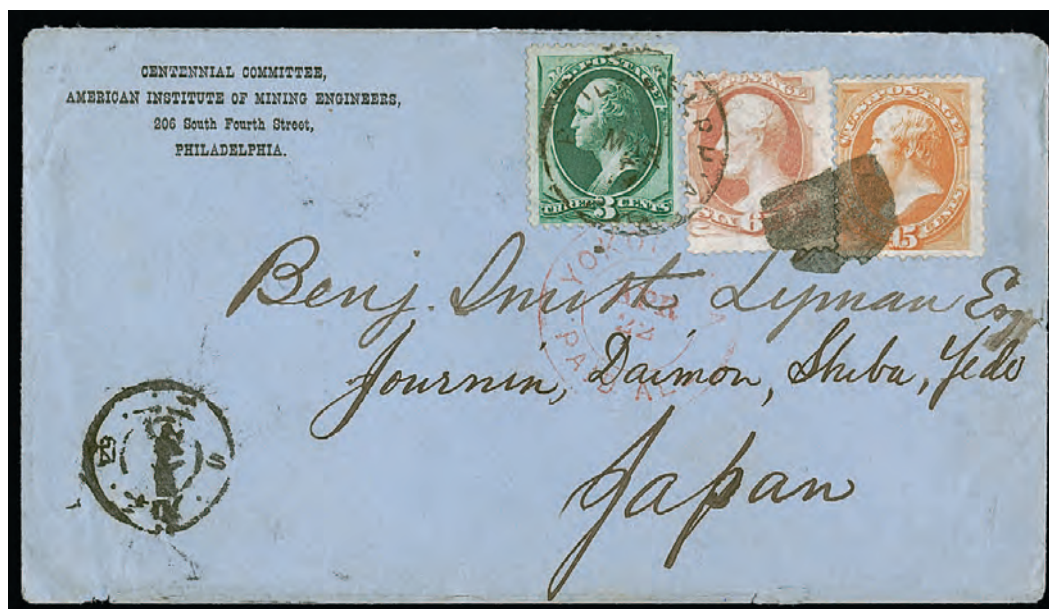 CENTENNIAL COMMITTEE,
AMERICAN INSTITUTE OF MINING ENGINEERS,
206 South Fourth Street,
PHILADELPHIA.
U.S. POSTAGE
THREE 3 CENTS
POSTAGE
SIX 6
U.S. POSTAGE
15 CENTS
YOKO
APR
22
PA
Benj. Smith Lyman Esq
Journin, Daimon, Shiba, Yedo
Japan
S